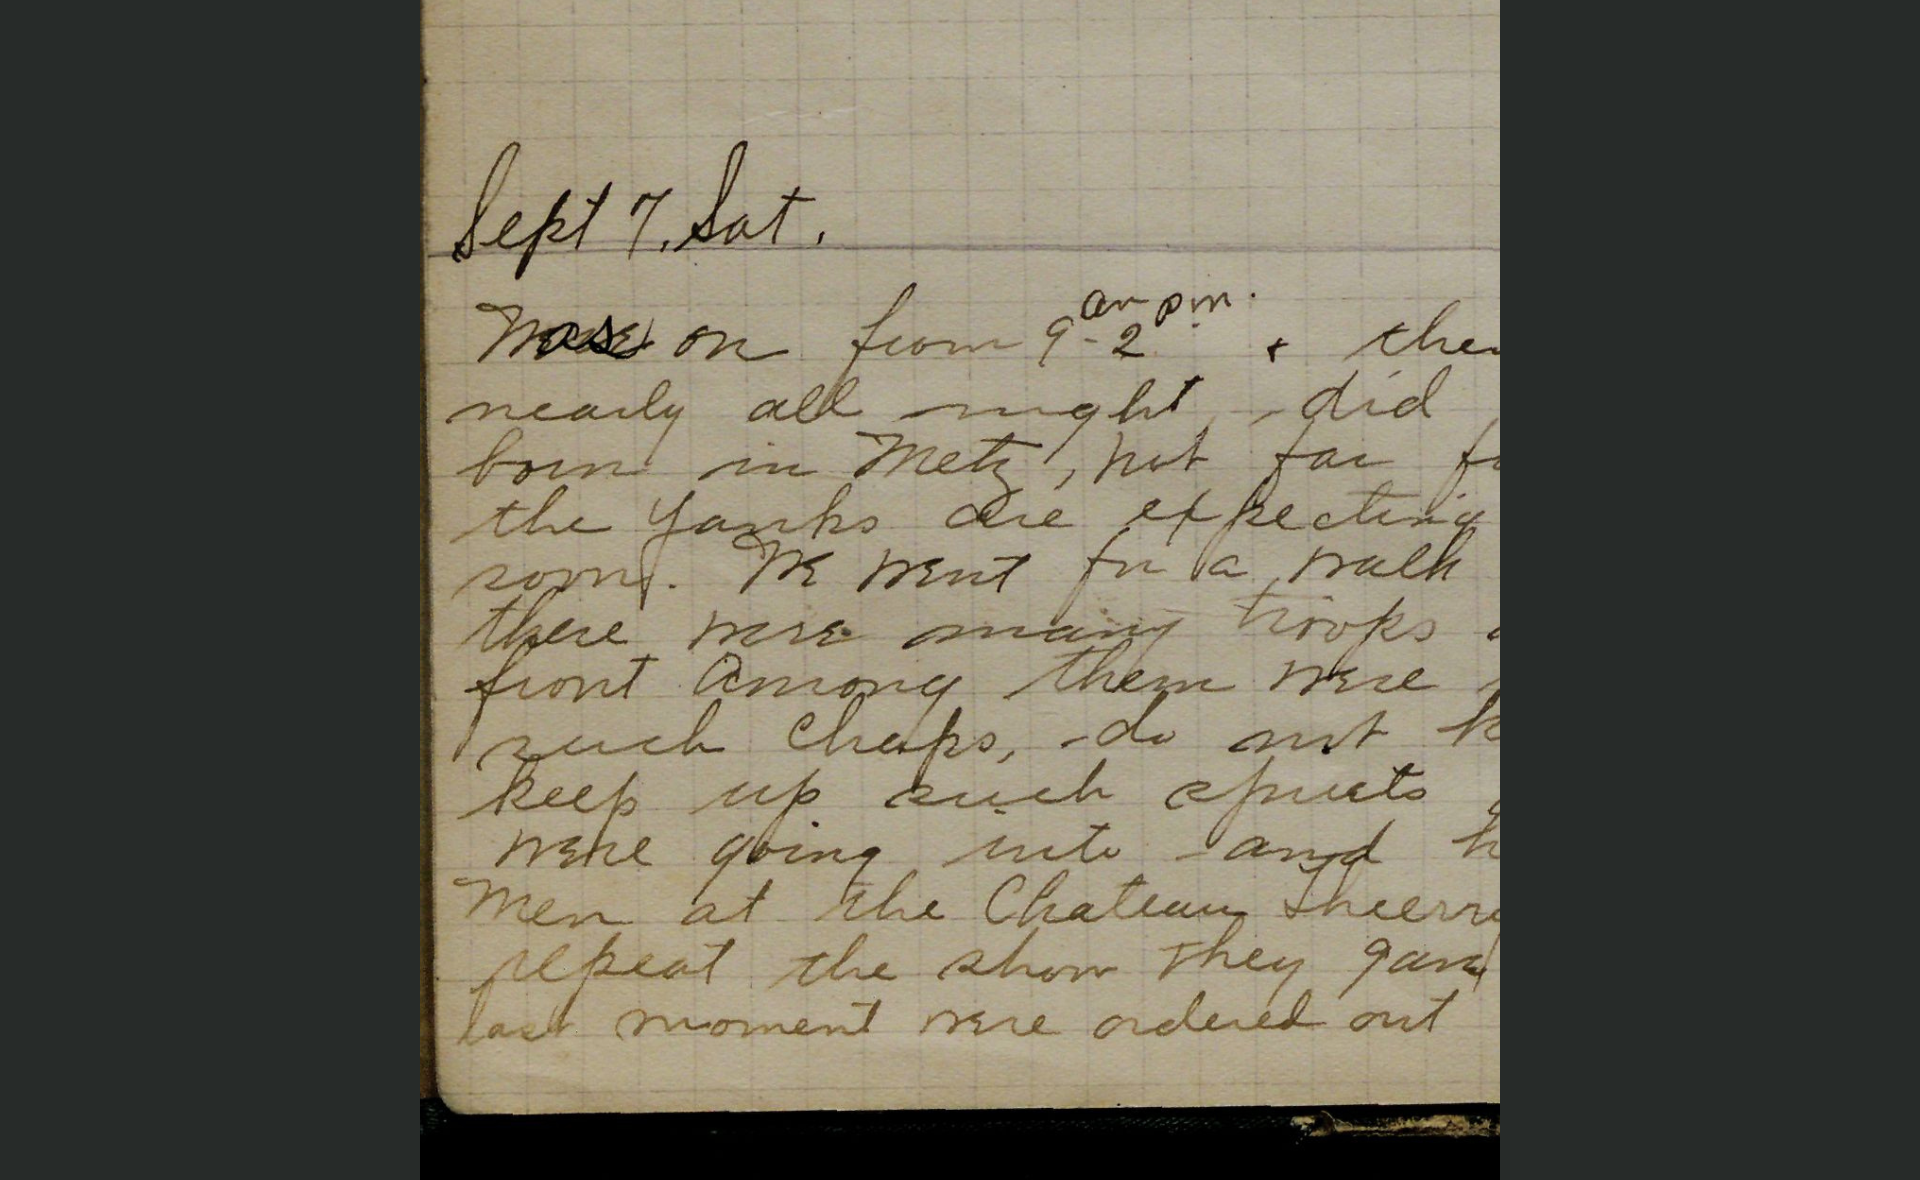 Sept 7. Sat.
Was on from 9 am - 2 pm. +
nearly all night, - did
born in Metz, not far
the Yanks are expecting
soon. We went for a walk
there were many troops
front Among them were
such chaps, - do not
keep up such spirits
were going into - and
Men at the Chateau
repeat the show they
last moment were ordered out